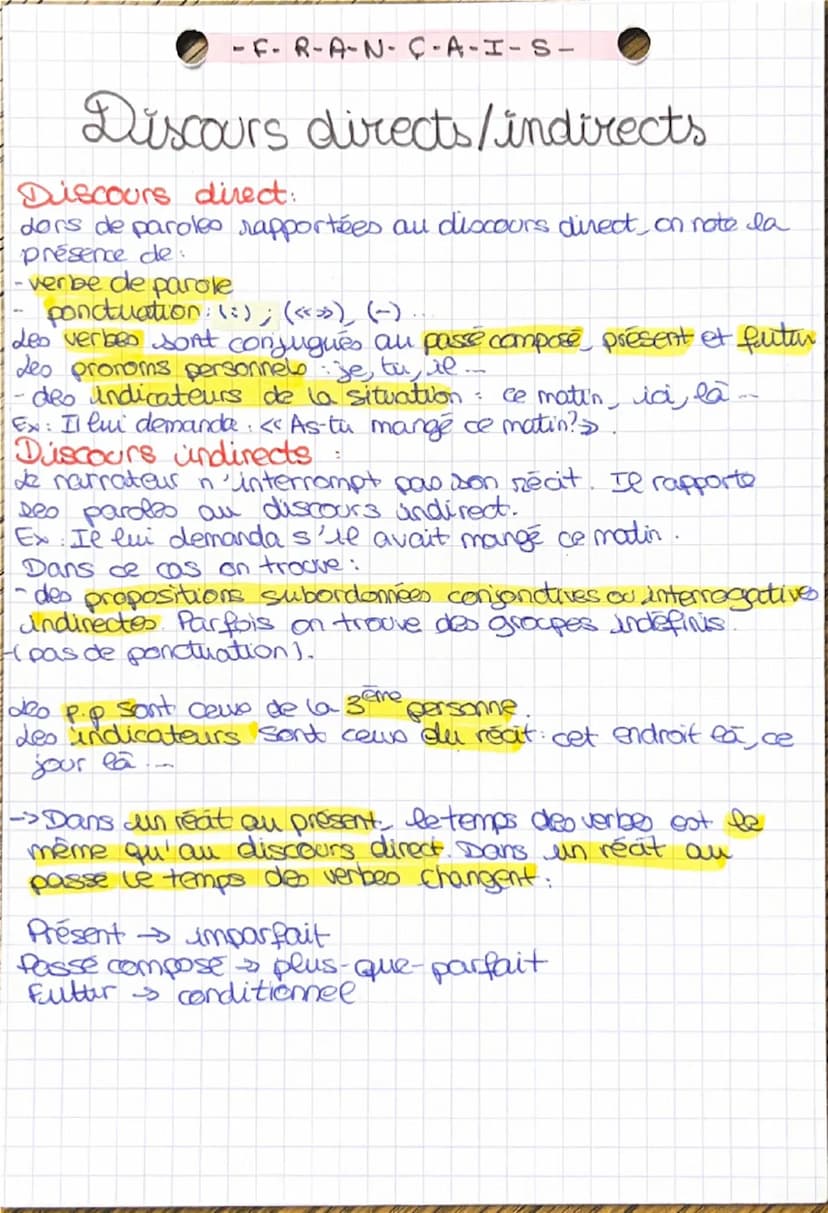 -F-R-A-N-Ç-A-I-S-
Discours directs/indirects
Discours direct:
Lors de paroles rapportées au discours direct, on note la
présence de:
- verbe de parole
- ponctuation: (:) ; («»), (-) ...
Les verbes sont conjugués au passé composé, présent et futur
Les pronoms personnels : je, tu, il ...
- des indicateurs de la situation : ce matin, ici, là ...
Ex: Il lui demanda : << As-tu mangé ce matin? >>.
Discours indirects :
Le narrateur n'interrompt pas son récit. Il rapporte
les paroles au discours indirect.
Ex : Il lui demanda s'il avait mangé ce matin.
Dans ce cas on trouve :
- des propositions subordonnées conjonctives ou interrogatives
indirectes. Parfois on trouve des groupes indéfinis.
- (pas de ponctuation).
Les p.p sont ceux de la 3ème personne.
Les indicateurs sont ceux du récit: cet endroit là, ce
jour là ...
-> Dans un récit au présent, le temps des verbes est le
même qu'au discours direct. Dans un récit au
passé le temps des verbes changent :
Présent -> imparfait
Passé composé -> plus-que-parfait
Futur -> conditionnel